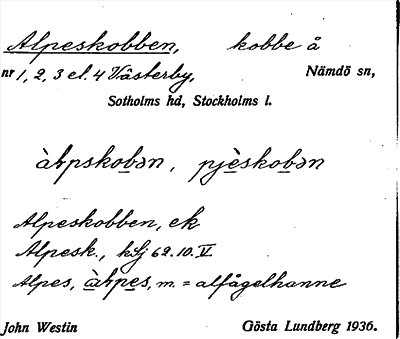 Alpeskobben, kobbe å
nr 1, 2, 3 el. 4 Västerby, Nämdö sn,
Sotholms hd, Stockholms l.
àɫpskobən, pjèskobən
Alpeskobben, ek
Alpesk., kSj 62.10.V
Alpes, àɫpes, m. = alfågelhanne
John Westin Gösta Lundberg 1936.